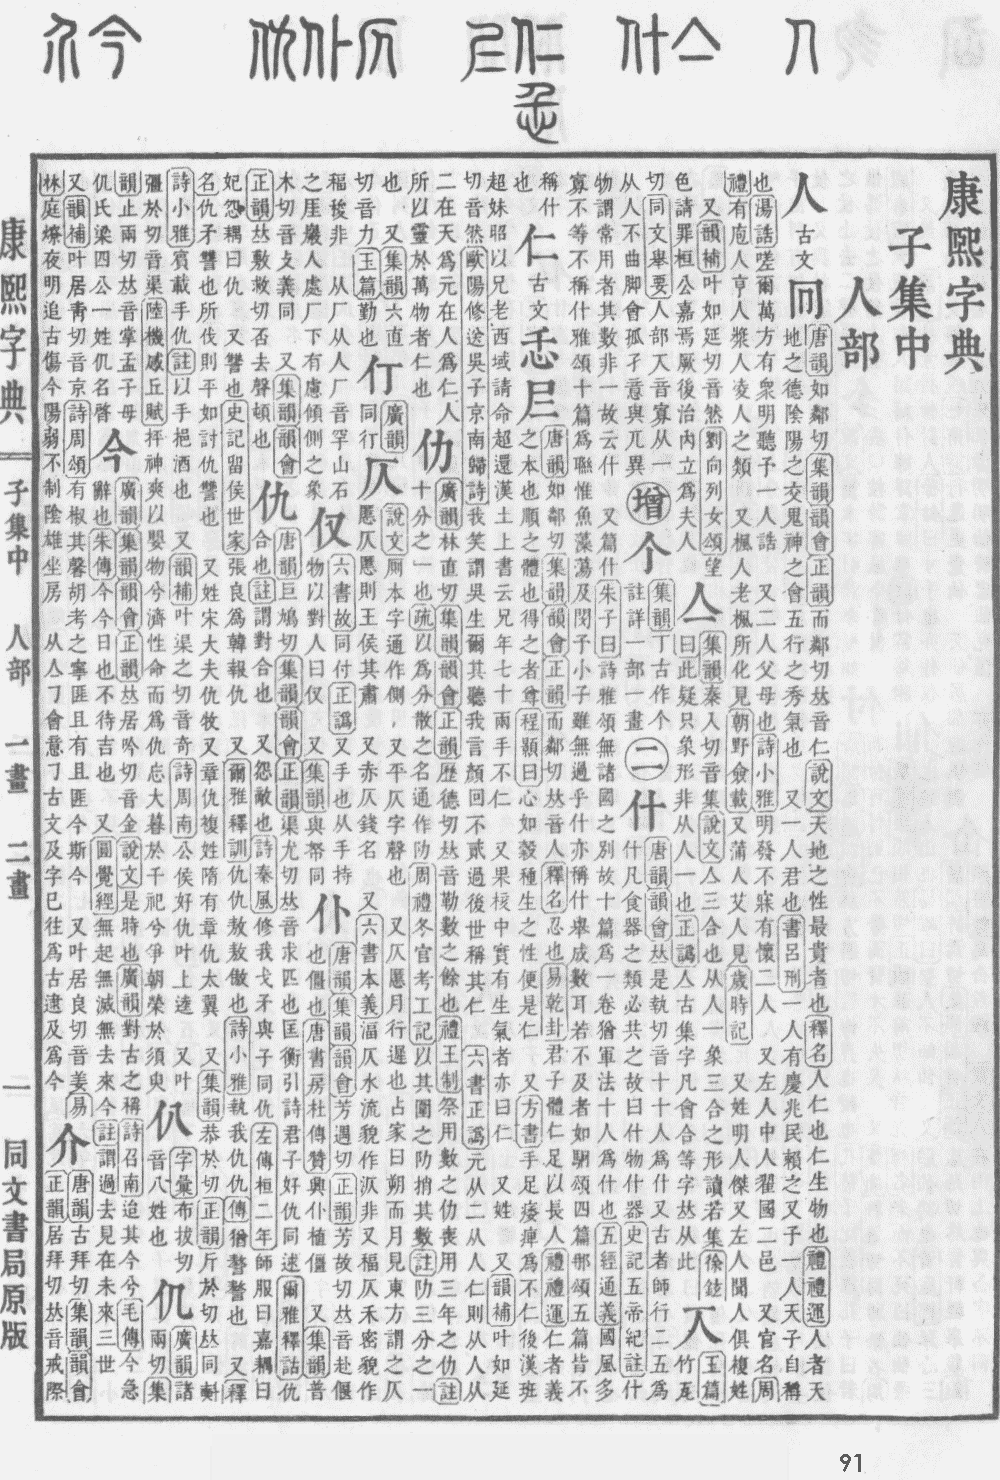 康熙字典
子集中
人部
人
古文
唐韻如鄰切集韻韻會正韻而鄰切𠀤音仁說文天地之性最貴者也釋名人仁也仁生物也禮禮運人者天
地之德陰陽之交鬼神之會五行之秀氣也 又一人君也書呂刑一人有慶兆民賴之又予一人天子自稱
也湯誥嗟爾萬方有衆明聽予一人誥 又二人父母也詩小雅明發不寐有懷二人 又左人中人翟國二邑 又官名周
禮有庖人亨人漿人凌人之類 又楓人老楓所化見朝野僉載又蒲人艾人見歲時記 又姓明人傑又左人聞人俱複姓
又韻補叶如延切音然劉向列女頌望
色請罪桓公嘉焉厥後治內立爲夫人
亼
集韻秦入切音集說文亼三合也从人一象三合之形讀若集徐鉉
曰此疑只象形非从人一也正譌亼古集字凡會合等字𠀤从此
亽
玉篇
竹瓦
切同文舉要人部亽音寡从一
从人不曲脚會孤孑意與兀異
增
个
集韻丁古作个
註詳丨部一畫
二
什
唐韻韻會𠀤是執切音十十人爲什又古者師行二五爲
什凡食器之類必共之故曰什物什器史記五帝紀註什
物謂常用者其數非一故云什 又篇什朱子曰詩雅頌無諸國之別故十篇爲一卷猶軍法十人爲什也五經通義國風多
寡不等不稱什雅頌十篇爲聯惟魚藻蕩及閔子小子雖無過乎什亦稱什舉成數耳若不及者如駉頌四篇那頌五篇皆不
稱什
也
仁
古文
忎𡰥
唐韻如鄰切集韻韻會正韻而鄰切𠀤音人釋名忍也易乾卦君子體仁足以長人禮禮運仁者義
之本也順之體也得之者尊程顥曰心如穀種生之性便是仁 又方書手足痿痺爲不仁後漢班
超妹昭以兄老西域請命超還漢土上書云兄年七十兩手不仁 又果核中實有生氣者亦曰仁 又姓 又韻補叶如延
切音然歐陽修送吳子京南歸詩我笑謂吳生爾其聽我言顏回不貳過後世稱其仁 六書正譌元从二从人仁則从人从
二在天爲元在人爲仁人
所以靈於萬物者仁也
仂
廣韻林直切集韻韻會正韻歷德切𠀤音勒數之餘也禮王制祭用數之仂喪用三年之仂註
十分之一也疏以爲分散之名通作扐周禮冬官考工記以其圍之扐捎其數註扐三分之一
也 又集韻六直
切音力玉篇勤也
仃
廣韻
同行
仄
說文厠本字通作側, 又平仄字聲也 又仄慝月行遲也占家曰朔而月見東方謂之仄
慝仄慝則王侯其肅 又赤仄錢名 又六書本義湢仄水流貌作汳非又福仄禾密貌作
福稄非 从厂从人厂音罕山石
之厓巖人處厂下有慮傾側之象
仅
六書故同付正譌又手也从手持
物以對人曰仅 又集韻與帑同
仆
唐韻集韻韻會芳遇切正韻芳故切𠀤音赴偃
也僵也唐書房杜傳贊興仆植僵 又集韻普
木切音攴義同 又集韻韻會
正韻𠀤敷救切否去聲頓也
仇
唐韻巨鳩切集韻韻會正韻渠尤切𠀤音求匹也匡衡引詩君子好仇同逑爾雅釋詁仇
合也註謂對合也 又怨敵也詩秦風修我戈矛與子同仇左傳桓二年師服曰嘉耦曰
妃怨耦曰仇 又讐也史記留侯世家張良爲韓報仇 又爾雅釋訓仇仇敖敖傲也詩小雅執我仇仇傳猶謷謷也 又釋
名仇矛讐也所伐則平如討仇讐也 又姓宋大夫仇牧又章仇複姓隋有章仇太翼 又集韻恭於切正韻斤於切𠀤同𣂁
詩小雅賓載手仇註以手挹酒也 又韻補叶渠之切音奇詩周南公侯好仇叶上逵 又叶
彊於切音渠陸機感丘賦抨神爽以嬰物兮濟性命而爲仇忘大暮於千祀兮爭朝榮於須臾
仈
字彙布拔切
音八姓也
仉
廣韻諸
兩切集
韻止兩切𠀤音掌孟子母
仉氏梁四公一姓仉名䜣
今
廣韻集韻韻會正韻𠀤居吟切音金說文是時也廣韻對古之稱詩召南迨其今兮毛傳今急
辭也朱傳今今日也不待吉也 又圓覺經無起無滅無去來今註謂過去見在未來三世
又韻補叶居靑切音京詩周頌有椒其馨胡考之寧匪且有且匪今斯今 又叶居良切音姜易
林庭燎夜明追古傷今陽弱不制陰雄坐房 从亼㇇會意㇇古文及字已往爲古遠及爲今
介
唐韻古拜切集韻韻會
正韻居拜切𠀤音戒際
康熙字典
子集中 人部
一畫 二畫
一
同文書局原版
91